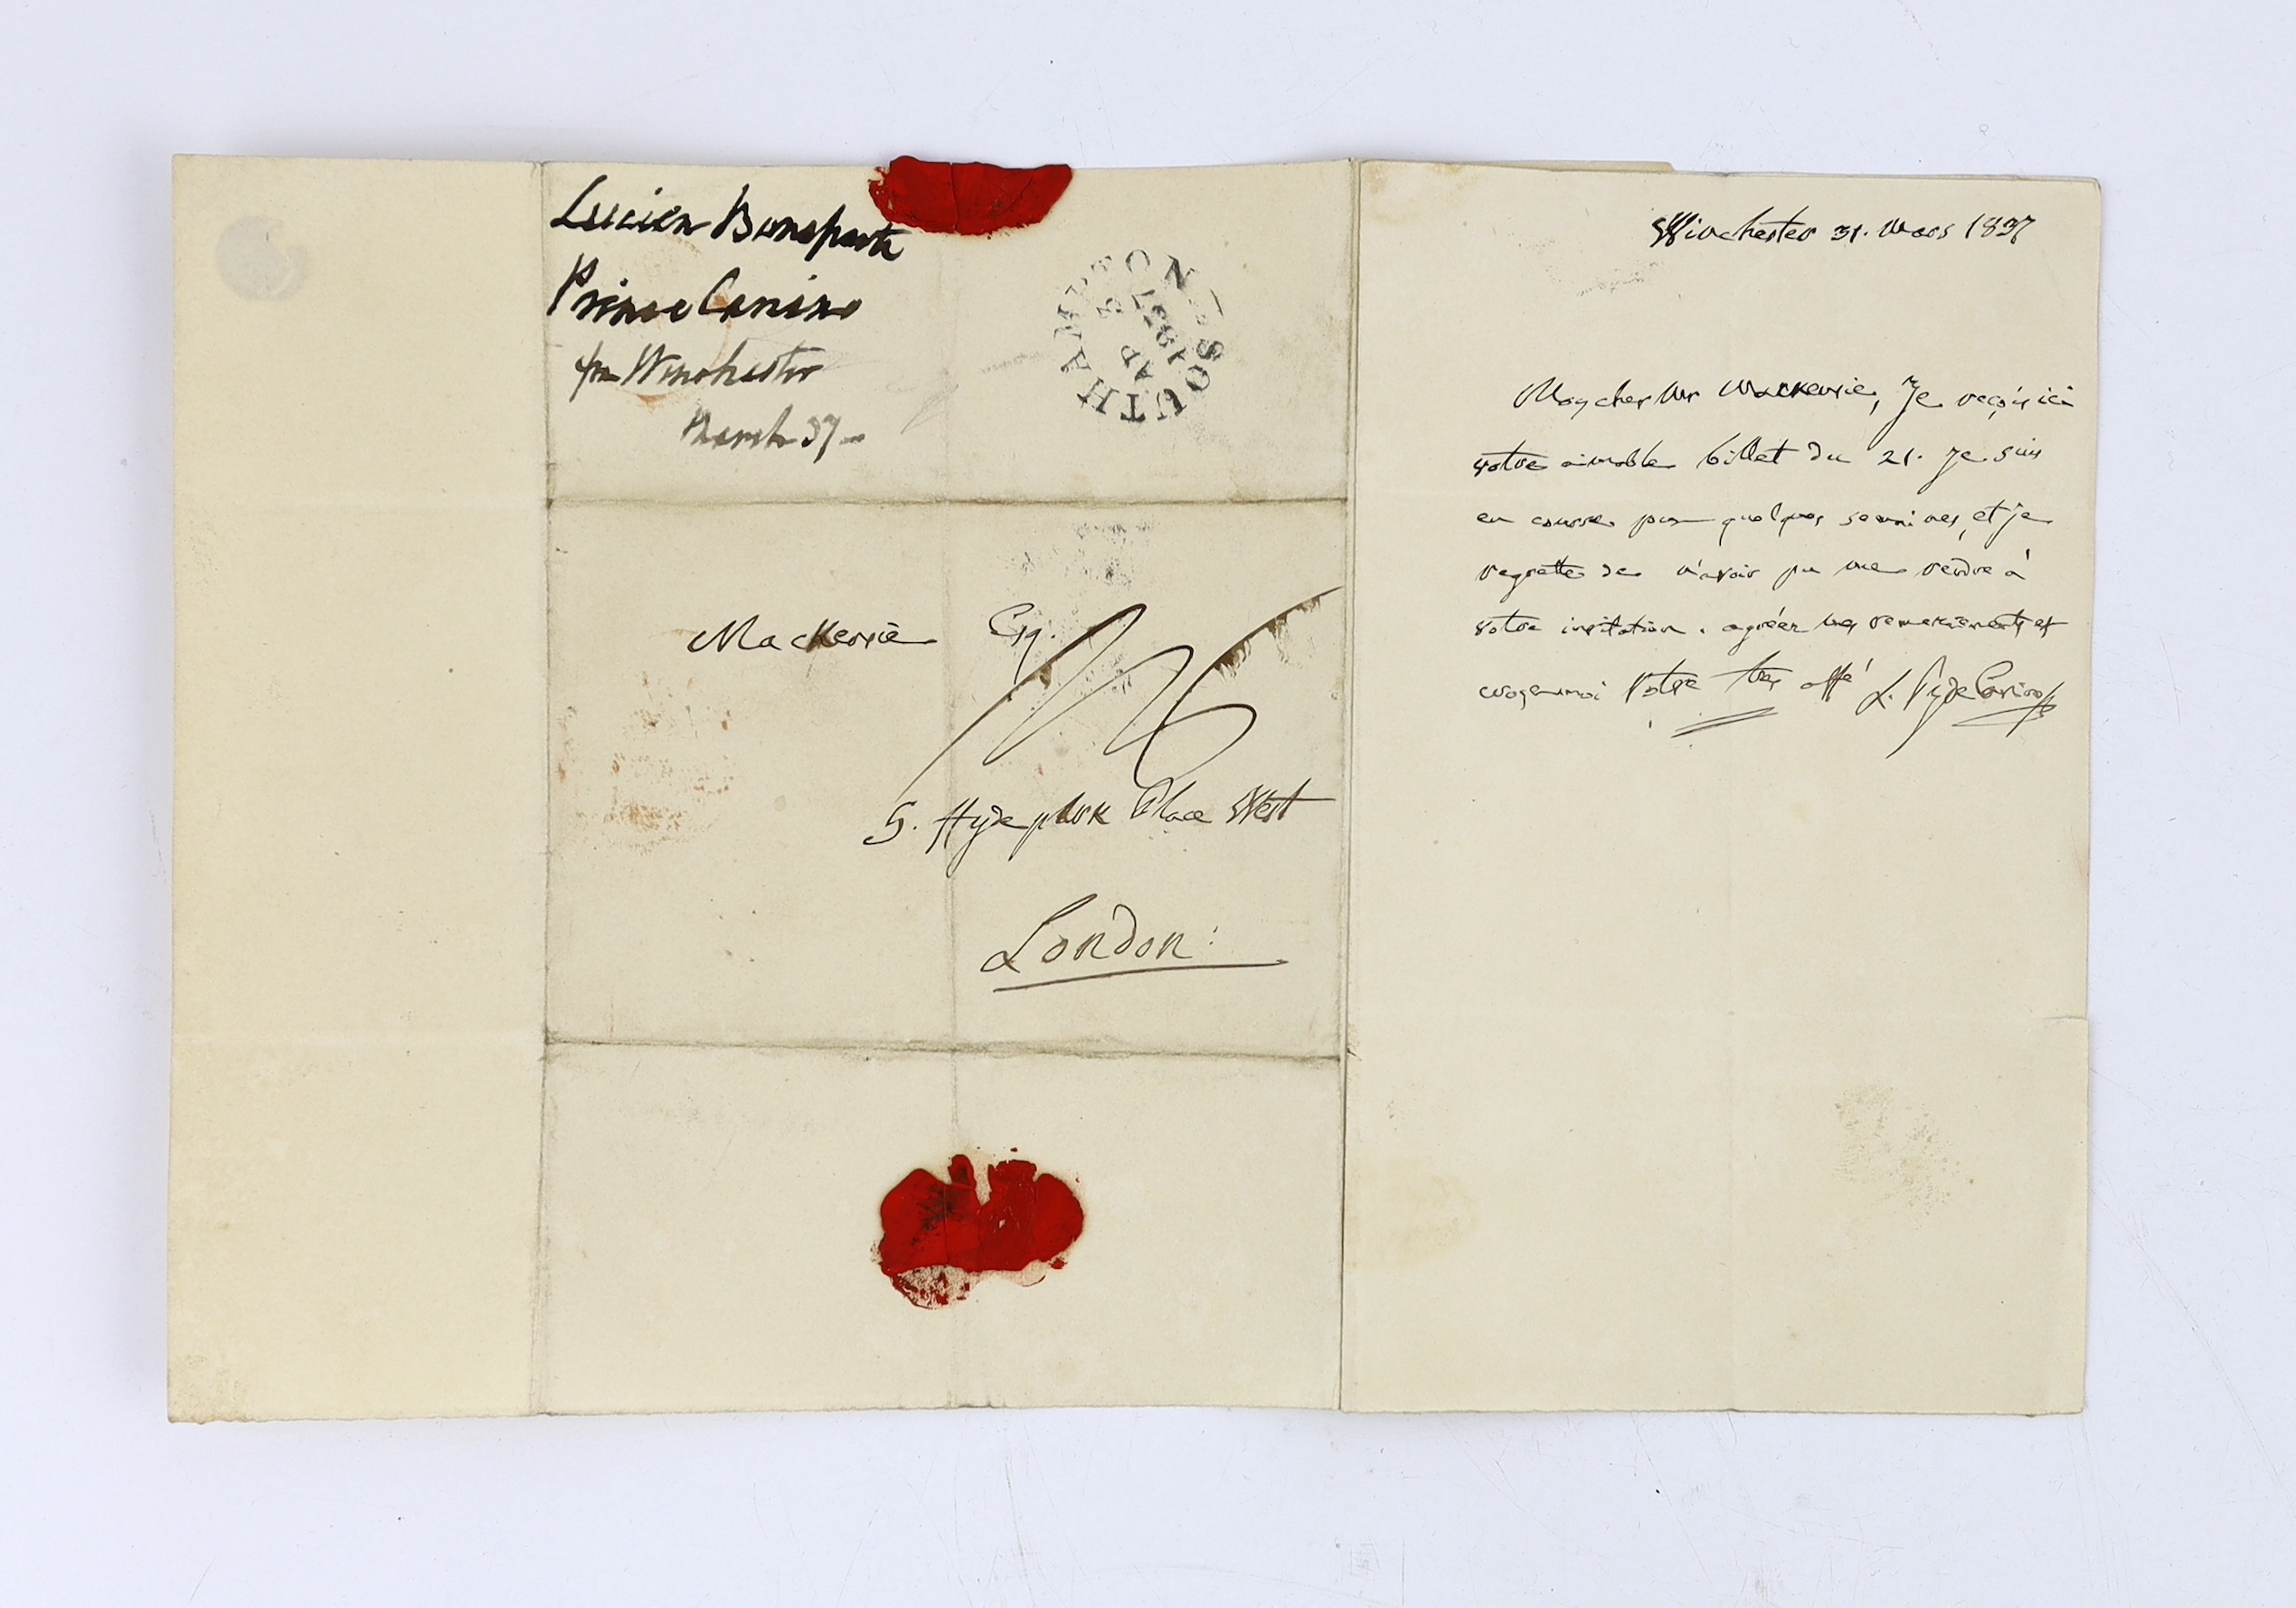 Lucien Bonaparte
Prince Canino
from Winchester
March 37
SOUTHAMPTON
AP
1837
MacKensie Esq.
5. Hyde park Place West
London:
Winchester 31. Mars 1837
Mon cher Mr Mackensie, Je reçois ici
votre aimable billet du 21. Je suis
en course pour quelques semaines, et je
regrette de n'avoir pu me rendre à
votre invitation. agréez mes remerciements et
croyez moi Votre très affé L. P. de Canino